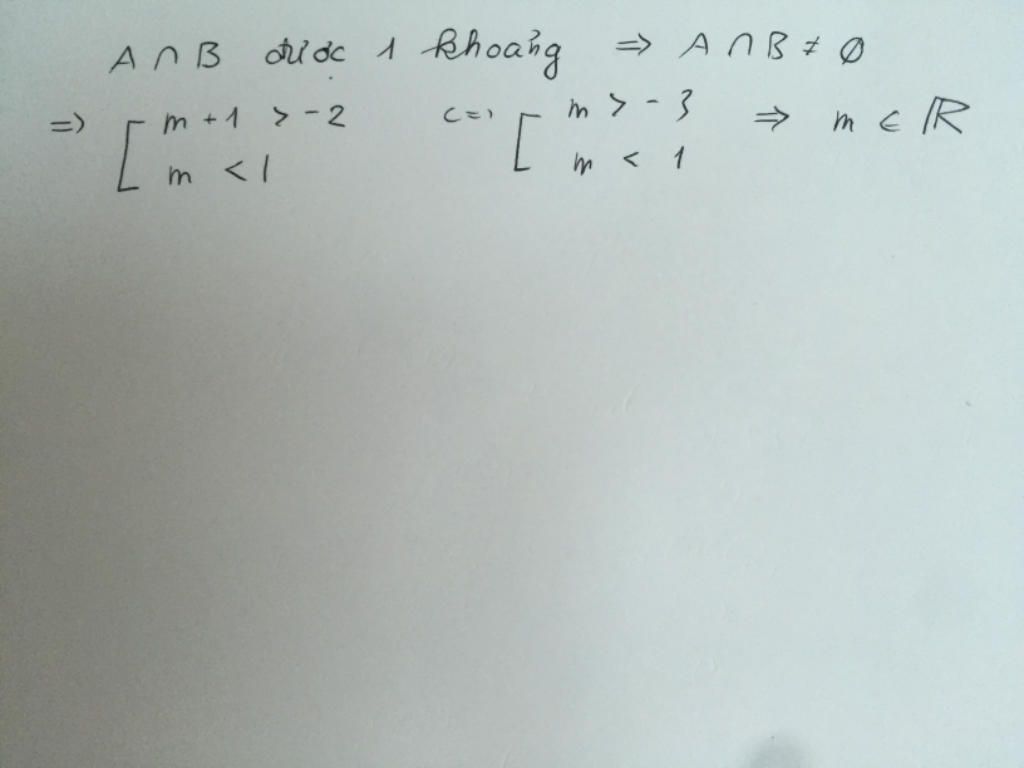 A ∩ B được 1 khoảng => A ∩ B ≠ ∅
=> [ m + 1 > - 2 <=> [ m > - 3 => m ∈ ℝ
m < 1 m < 1